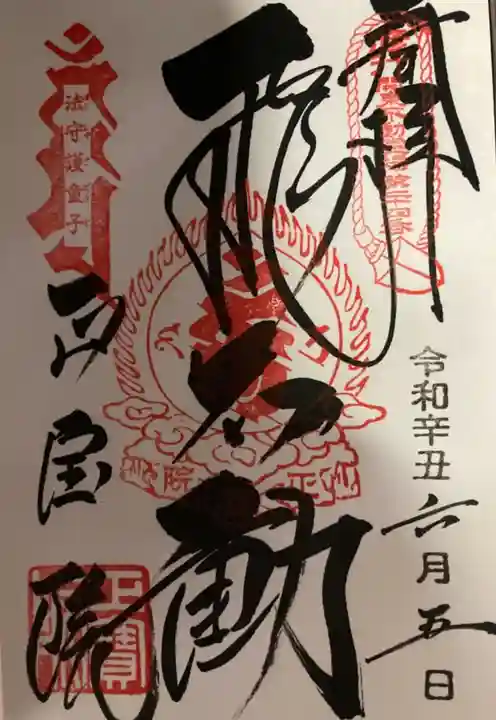 奉拝
令和辛丑六月五日
飛不動
法守護童子
正宝院
正寳院